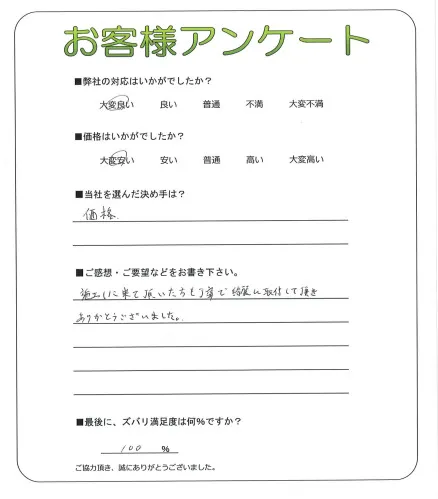 お客様アンケート
■弊社の対応はいかがでしたか？
大変良い 良い 普通 不満 大変不満
■価格はいかがでしたか？
大変安い 安い 普通 高い 大変高い
■当社を選んだ決め手は？
価格
■ご感想・ご要望などをお書き下さい。
施工に来て頂いた方も丁寧で綺麗に取付して頂き
ありがとうございました。
■最後に、ズバリ満足度は何％ですか？
100 ％
ご協力頂き、誠にありがとうございました。